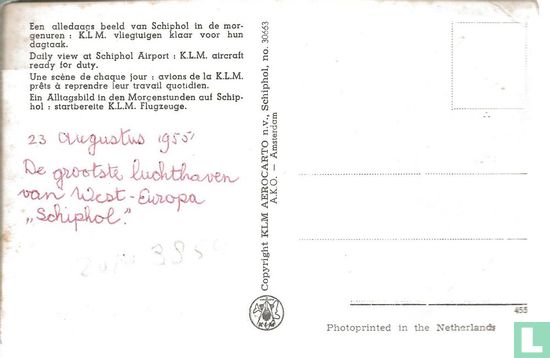 Een alledaags beeld van Schiphol in de mor-
genuren : K.L.M. vliegtuigen klaar voor hun
dagtaak.
Daily view at Schiphol Airport : K.L.M. aircraft
ready for duty.
Une scène de chaque jour : avions de la K.L.M.
prêts à reprendre leur travail quotidien.
Ein Alltagsbild in den Morgenstunden auf Schip-
hol : startbereite K.L.M. Flugzeuge.
23 Augustus 1955
De grootste luchthaven
van West-Europa
„Schiphol."
Copyright KLM AEROCARTO n.v., Schiphol, no. 30663
A.K.O. — Amsterdam
KLM
455
Photoprinted in the Netherlands
catawiki